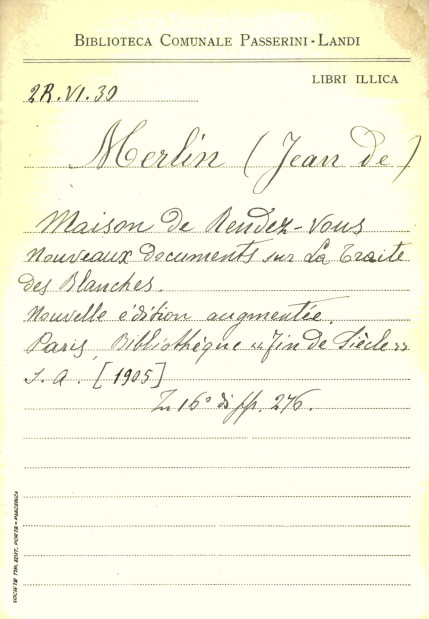 BIBLIOTECA COMUNALE PASSERINI-LANDI
LIBRI ILLICA
2R.VI.30
Merlin (Jean de)
Maison de Rendez-Vous
Nouveaux documents sur La Traite
des Blanches.
Nouvelle édition augmentée.
Paris, Bibliothèque «Fin de Siècle»
S.a. [1905]
In 16° di pp. 276.
SOCIETÀ TIP. EDIT. PORTA - PIACENZA